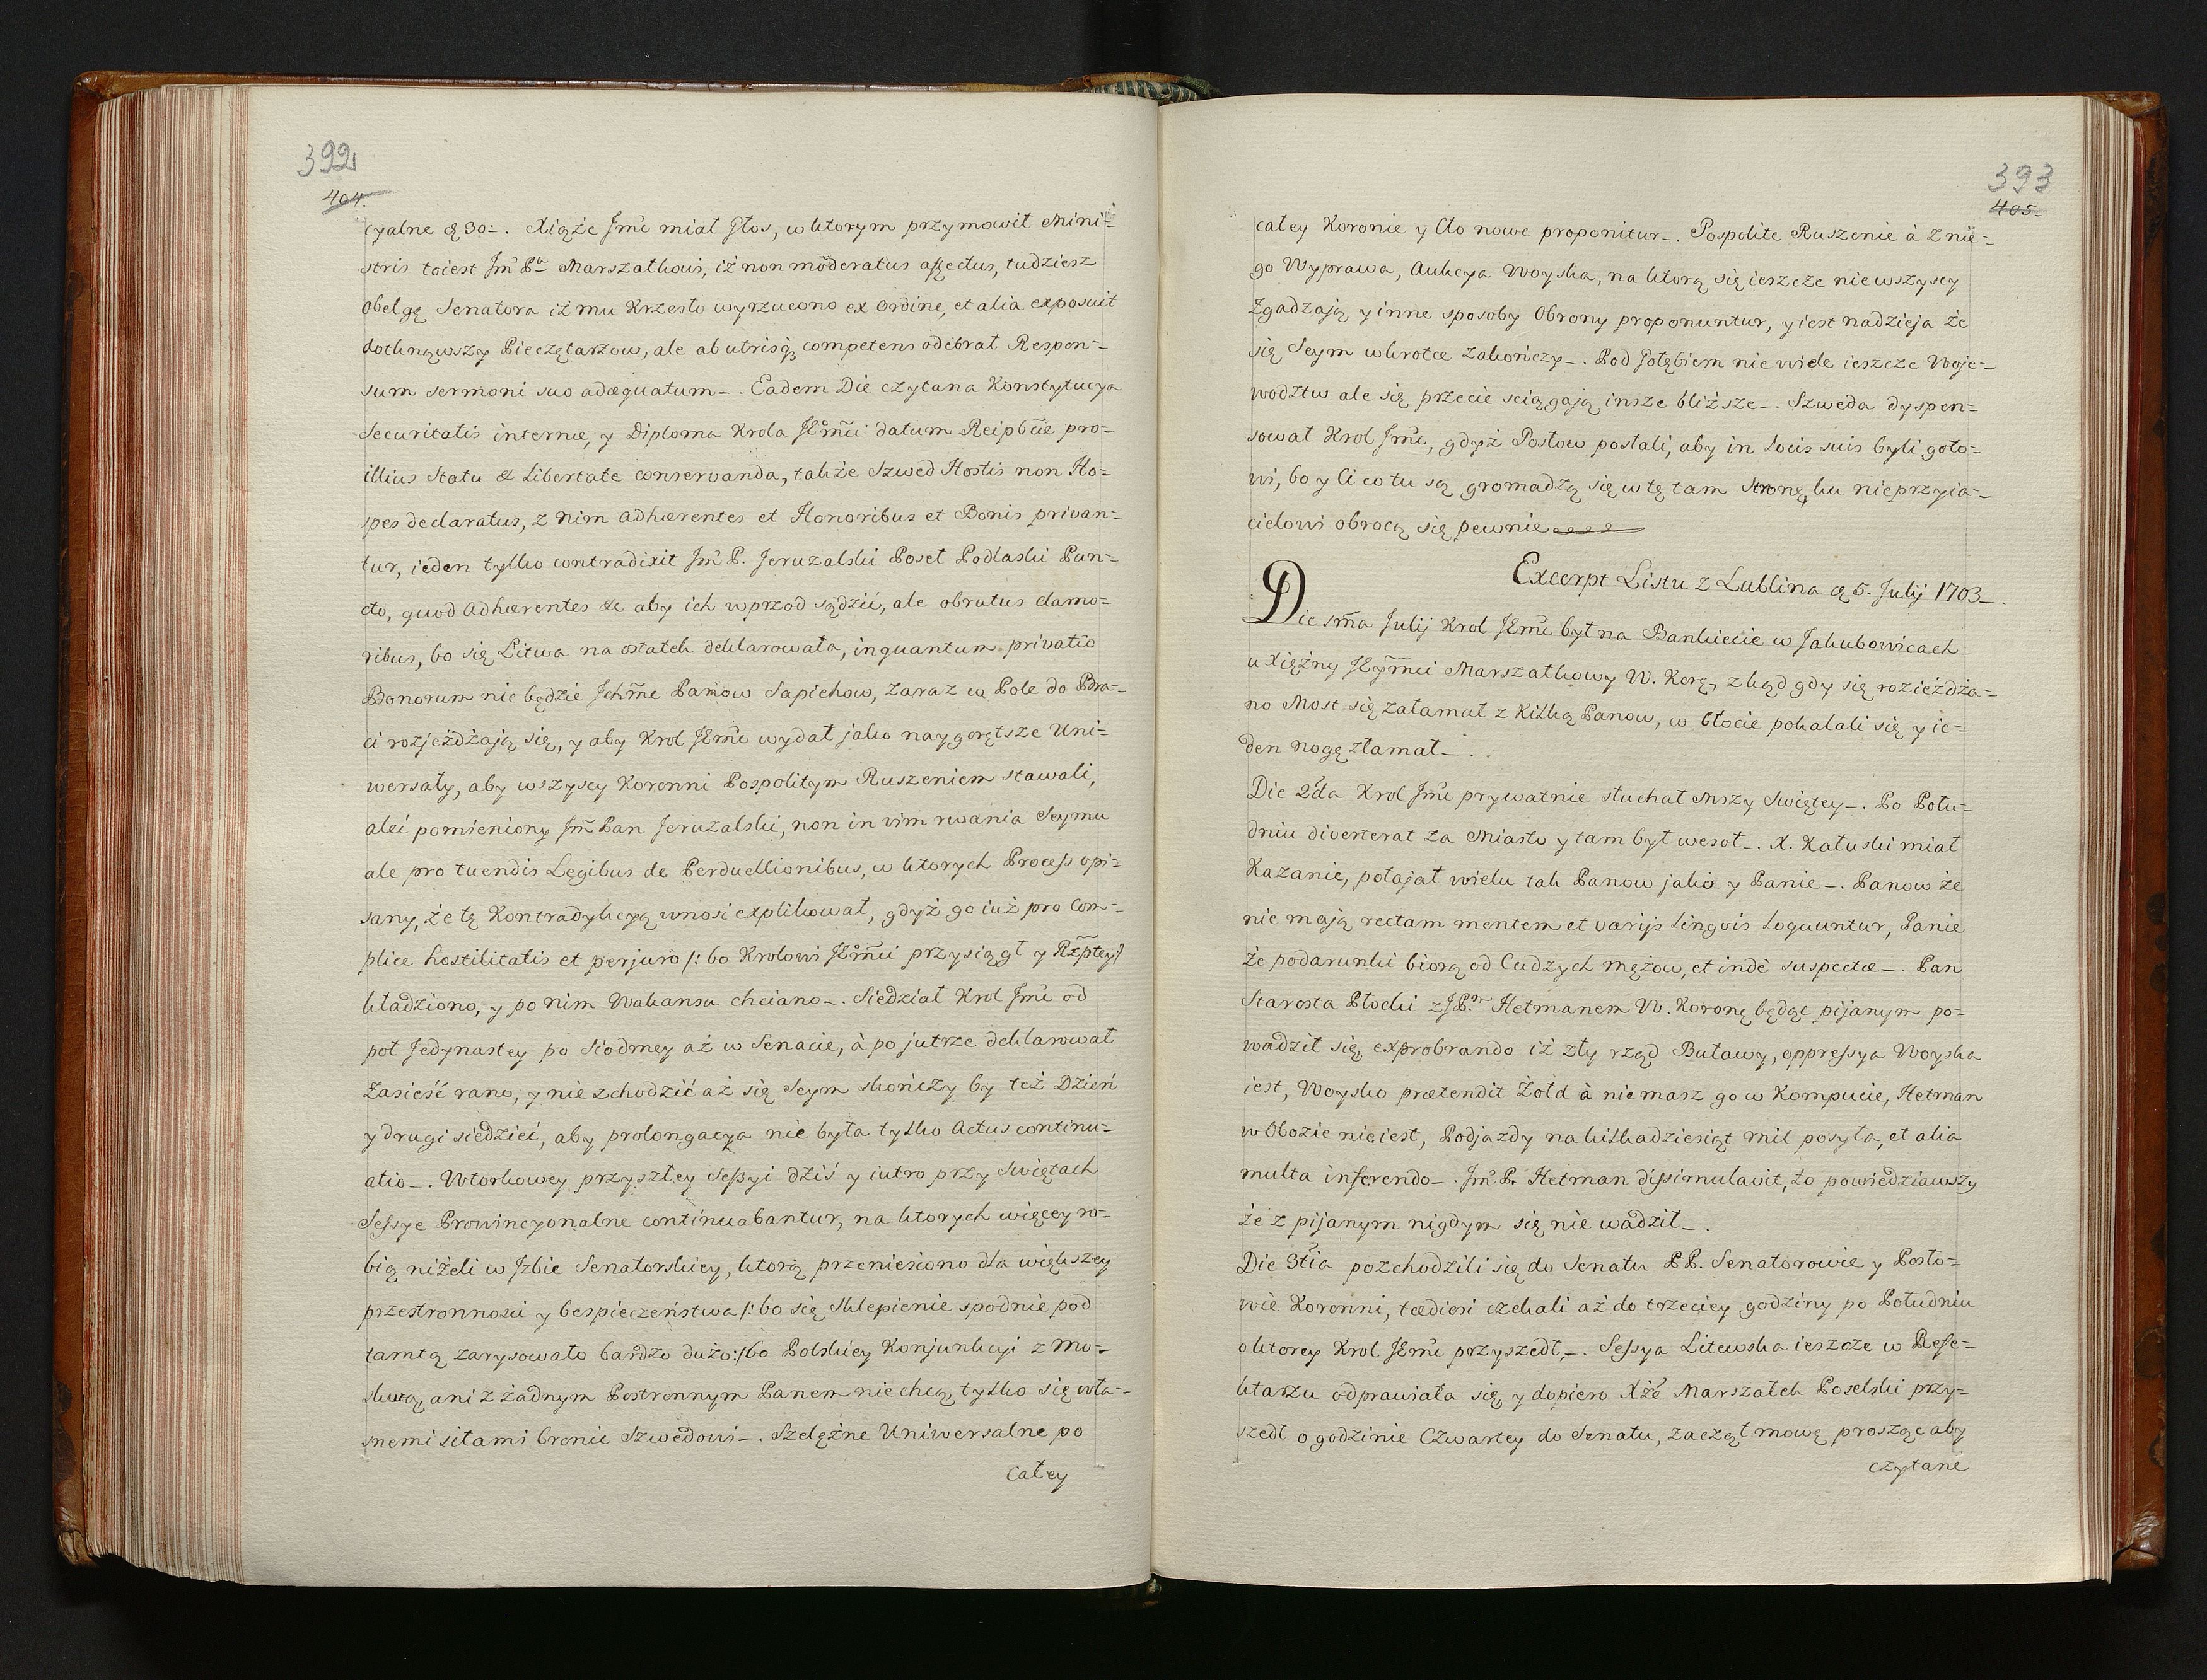 392
404.
cyalne ą 30-. Xiąże Jmć miał Głos, w ktorym przymowił Mini-
stris toiest Jm Pa Marszałkowi, iż non moderatus affectus, tudziesz
Obelgę Senatora iż mu Krzesło wyrzucono ex Ordine, et alia exposuit
dotknąwszy Pieczętarzow, ale ab utrisq competens odebrał Respon-
sum sermoni suo adæquatum-. Eadem Die czytana Konstytucya
Securitatis internæ, y Diploma Krola JEmci datum Reipbcæ pro-
illius Statu & Libertate conservanda, także Szwed Hostis non Ho-
spes declaratus, z nim adhærentes et Honoribus et Bonis privan-
tur, ieden tylko contradixit Jm P. Jeruzalski Poseł Podlaski Pun-
cto, quod adhærentes &c aby ich wprzod sądzić, ale obrutus clamo-
ribus, bo się Litwa na ostatek deklarowała, in quantum privatio
Bonorum nie będzie Jchmć Panow Sapiehow, zaraz w Pole do Bra-
ci rozjeżdżają się, y aby Krol JEmć wydał jako naygorętsze Uni-
wersały, aby wszyscy Koronni Pospolitym Ruszeniem stawali,
aleć pomieniony Jm Pan Jeruzalski, non in vim rwania Seymu
ale pro tuendis Legibus de Perduellionibus, w ktorych Process opi-
sany, że tę Kontradykcyą wnosi explikował, gdyż go iuż pro Com-
plice hostilitatis et perjuro /: bo Krolowi JEmci przysiągł y Rzptey:/
kładziono, y po nim Wakansu chciano-. Siedział Krol Jmć od
poł Jedynastey po Siodmey aż w Senacie, à po jutrze deklarował
Zasieść rano, y nie zchodzić aż się Seym skończy by też Dzień
y drugi siedzieć, aby prolongacya nie była tylko Actus continu-
atio-. Wtorkowey przyszłey Sessyi dziś y iutro przy Swiętach
Sessye Prowincyonalne continuabantur, na ktorych więcey ro-
bią niżeli w Jzbie Senatorskiey, ktorą przeniesiono dla większey
przestronnosci y bespieczeństwa /: bo się Sklepienie spodnie pod
tamtą zarysowało bardzo dużo :/ bo Polskiey Konjunkcyi z Mo-
skwą, ani z żadnym Postronnym Panem nie chcą, tylko się wła-
snemi siłami bronić Szwedowi-. Szelężne Uniwersalne po
całey

393
405.
całey Koronie y Cło nowe proponitur-. Pospolite Ruszenie à z nie-
go Wyprawa, Aukcya Woyska, na ktorą się ieszcze nie wszyscy
Zgadzają y inne sposoby Obrony proponuntur, y iest nadzieja że
się Seym wkrotce zakończy-. Pod Gołębiem nie wiele ieszcze Woje-
wodztw ale się przecie sciągają insze bliższe-. Szweda dyspen-
sował Krol Jmć, gdyż Posłow posłali, aby in Locis suis byli goto-
wi, bo y Ci co tu są gromadzą się w tę tam stronę ku nieprzyia-
cielowi obrocą się pewnie
Excerpt Listu z Lublina ą 5. Julij 1703-.
Die 1ma Julij Krol JEmć był na Bankiecie w Jakubowicach
u Xiężny JEymci Marszałkowy W. Korą, zkąd gdy się rozieżdża-
no Most się załamał z Kilką Panow, w błocie pokalali się y ie-
den nogę złamał-.
Die 2da Krol Jmć prywatnie słuchał Mszy Swiętey-. Po Połu-
dniu diverterat za Miasto y tam był wesoł-. X. Załuski miał
Kazanie, połajał wielu tak Panow jako y Panie-. Panow że
nie mają rectam mentem et varijs Lingvis Loquuntur, Panie
że podarunki biorą od Cudzych mężow, et indè suspectæ-. Pan
Starosta Płocki z JPm Hetmanem W. Koroną będąc pijanym po-
wadził się, exprobrando iż zły rząd Buławy, oppressya Woyska
iest, Woysko prætendit Żołd à nie masz go w Kompucie, Hetman
w Obozie nie iest, Podjazdy na kilkadziesiąt mil posyła, et alia
multa inferendo-. Jm P. Hetman dissimulavit, to powiedziawszy
że z pijanym nigdym się nie wadził-.
Die 3tia pozchodzili się do Senatu PP. Senatorowie y Posło-
wie Koronni, tædiosi czekali aż do trzeciey godziny po Południu
o ktorey Krol JEmć przyszedł,-. Sessya Litewska ieszcze w Refe-
ktarzu odprawiała się y dopiero Xżę Marszałek Poselski przy-
szedł o godzinie Czwartey do Senatu, zaczął mowę prosząc aby
czytane